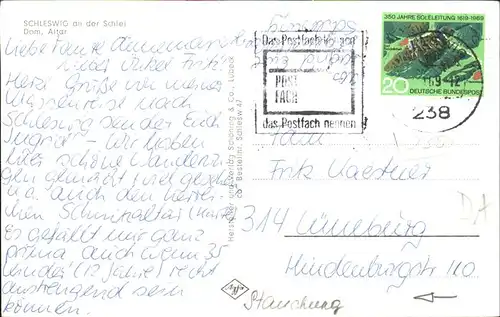 SCHLESWIG an der Schlei
Dom, Altar
Liebe Tante Annemarie
lieber Onkel Fritz!
Herzl. Grüße von meiner
Klassenreise nach
Schleswig sendet Euch
Ingrid – Wir haben
viele schöne Wanderun-
gen gemacht und
u.a. auch den herrli-
chen Schnitzaltar
Es gefällt mir ganz
prima auch wenn 35
Kinder (12 Jahre) recht
anstrengend sein
können.
Schleswig
Hersteller und Verlag Schöning & Co., Lübeck
Bestellnr. Schlesw 47
Das Postfach
POST
FACH
das Postfach nennen
350 JAHRE SOLELEITUNG 1619-1969
20
DEUTSCHE BUNDESPOST
69-12
238
Fritz Kaestner
314 Lüneburg
Hindenburgstr. 110.
Stauchung